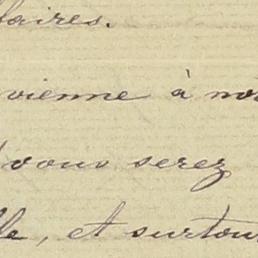 faires.
vienne à nos
vous serez
lle, et surtout